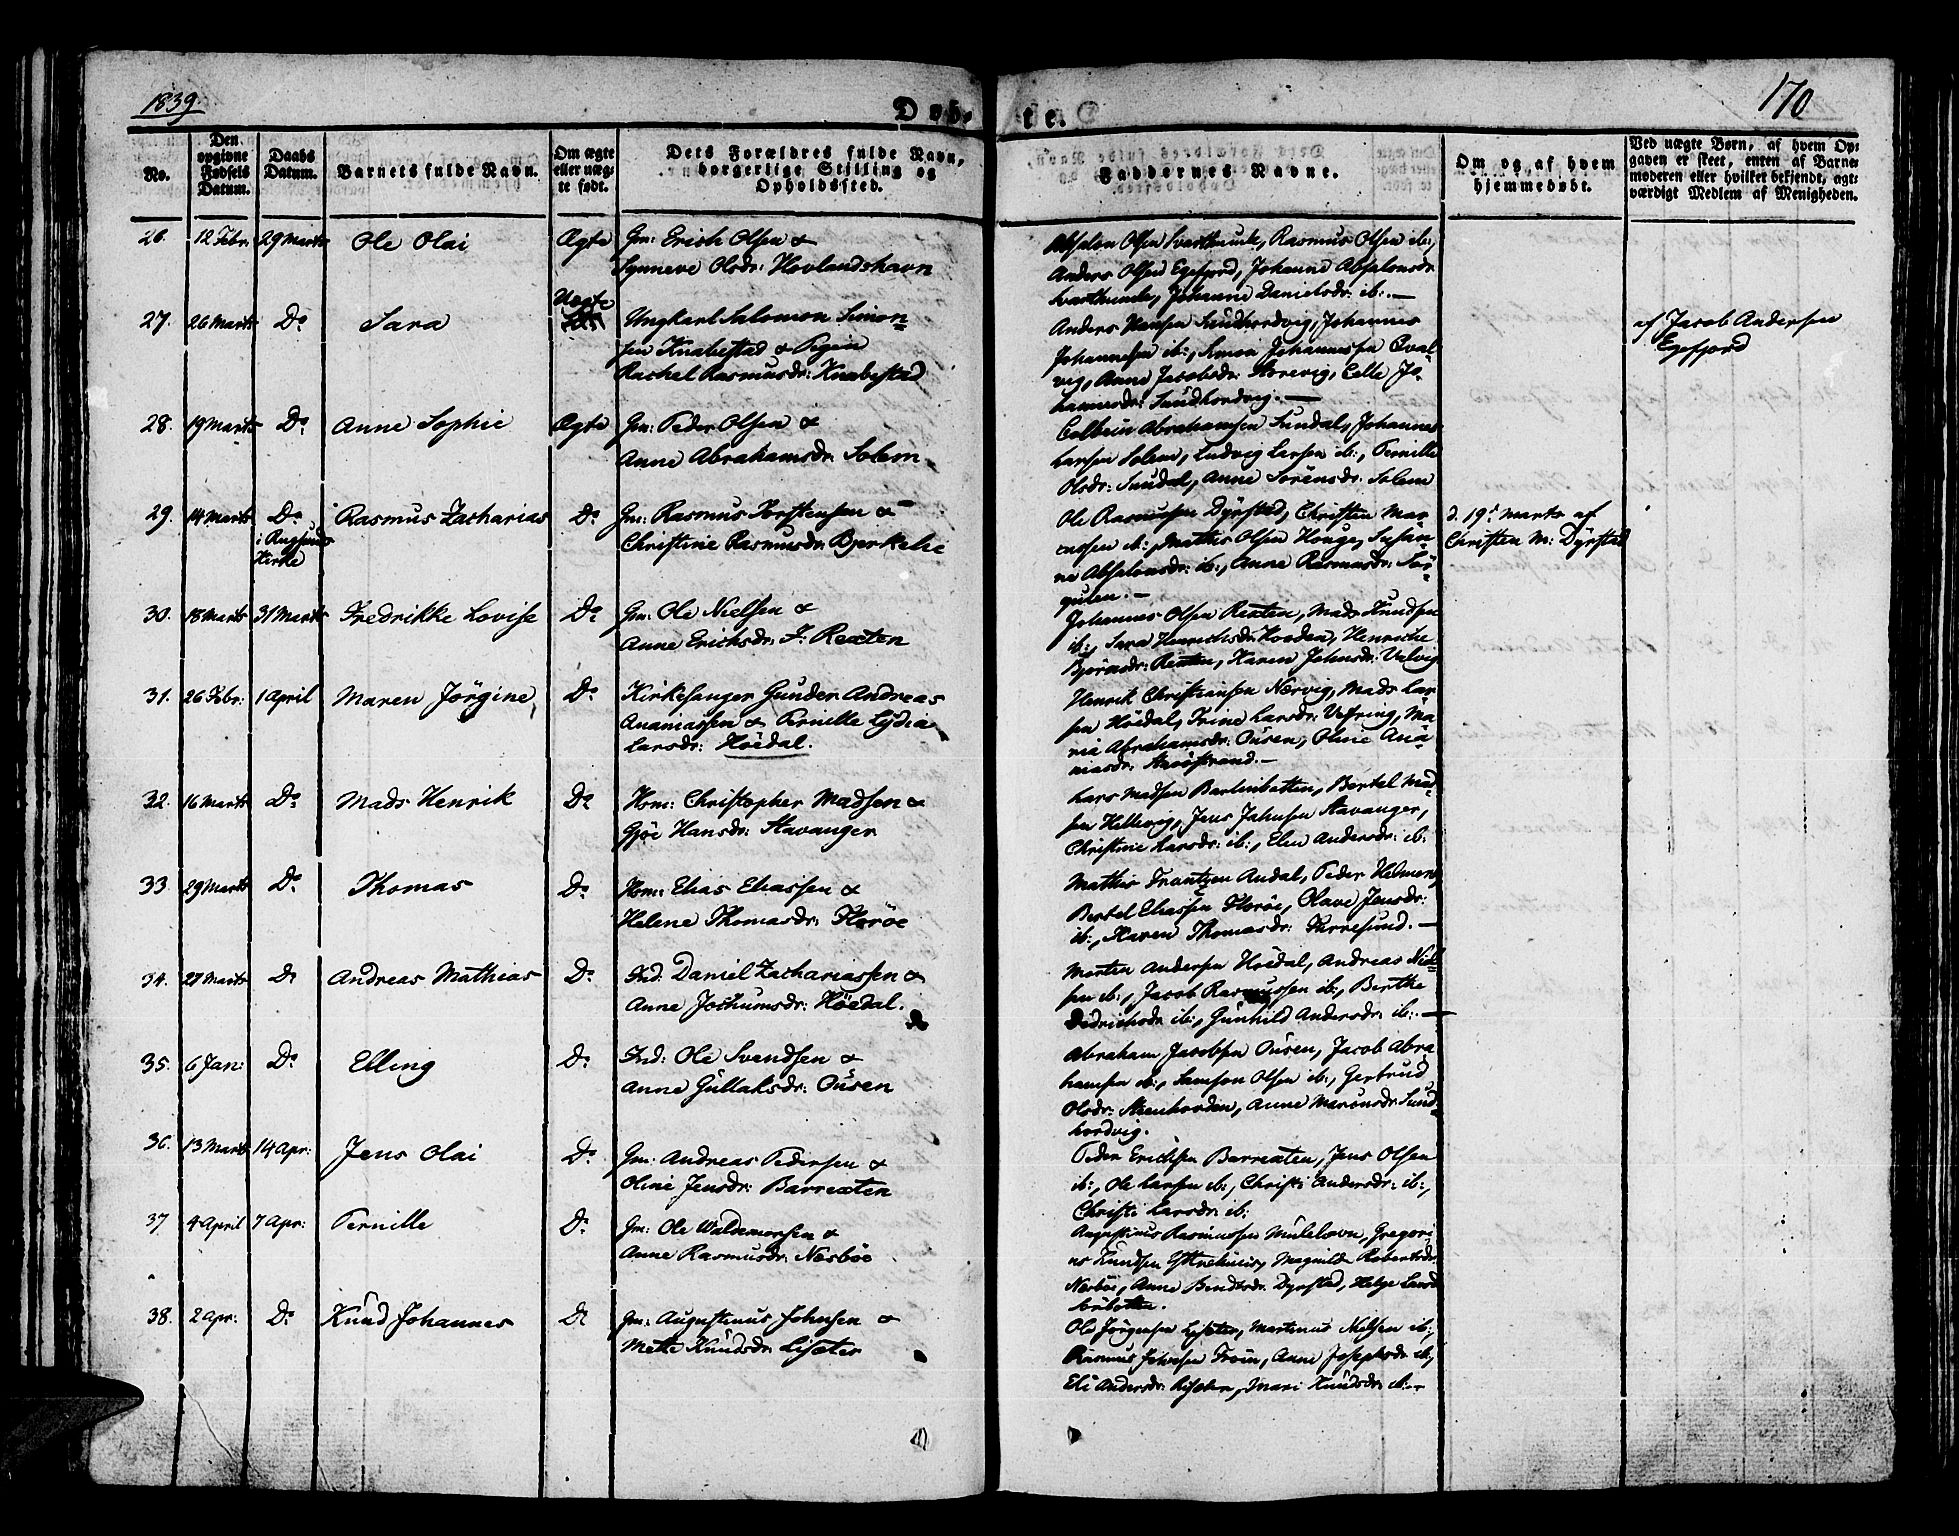 1839.
Døb-
te.
170
No.
Den opgivne Fødsels Datum.
Daabs Datum.
Barnets fulde Navn.
Om ægte eller uæg-te født.
Dets Forældres fulde Navn, borgerlige Stilling og Opholdssted.
Faddernes Navne.
Om og af hvem hjemmedøbt.
Ved uægte Børn, af hvem Op-
gaven er skeet, enten af Barne-
moderen eller hvilket bekjendt, agt-
værdigt Medlem af Menigheden.
26. 12 Febr: 29 Marts Ole Olai Ægte Gm: Erich Olsen &
Synneve Olsdr: Hovlandshavn
Absalon Olsen Svarthumle, Rasmus Olsen ib:,
Anders Olsen Egefjord, Johanne Absalonsdr
Svarthumle, Johanne Danielsdr: ib: —
27. 26 Marts Do Sara Uægte Ungkarl Salomon Simon-
sen Knabestad & Pigen
Rachel Rasmusdr: Knabestad
Anders Hansen Sundhordvig, Johannes
Johannesen ib:, Simon Johannessen Qval-
vig, Anne Jacobsdr: Storevig, Celle Jo-
hannesdr: Sundhordvig. —
af Jacob Andersen
Egefjord
28. 19 Marts Do Anne Sophie Ægte Gm: Peder Olsen &
Anne Abrahamsdr: Solem
Colbein Abrahamsen Sundal, Johannes
Larsen Solem, Ludvig Larsen ib:, Pernille
Olsdr: Sundal, Anne Sörensdr: Solem
29. 14 Marts Do i Rugsunds Kirke Rasmus Zacharias Do Gm: Rasmus Torstensen &
Christine Rasmusdr: Bjerkelie
Ole Rasmussen Dyrstad, Christen Mar-
ensen ib:, Mathis Olsen Houge, Susan-
ne Absalonsdr: ib:, Anne Rasmusdr: Sör-
gulen. —
d. 19d Marts af
Christen M: Dyrstad
30. 18 Marts 31 Marts Fredrikke Lovise Do Gm: Ole Nielsen &
Anne Erichsdr: I: Rexten
Johannes Olsen Rexten, Mads Knudsen
ib:, Sara Henrichsdr: Hovden, Henriche
Björnsdr: Rexten, Karen Johnsdr: Valvig
31. 26 Febr: 1 April Maren Jörgine Do Kirkesanger Gunder Andreas
Ananiassen & Pernille Lydia
Larsdr: Höidal.
Henrik Christiansen Nervig, Mads Lar-
sen Höidal, Trine Larsdr: Vefring, Ma-
ria Abrahamsdr: Ousen, Oline Ana-
niasdr:
32. 16 Marts Do Mads Henrik Do Hm: Christopher Madsen &
Gjöe Hansdr: Stavanger
Lars Madsen Barlinbotten, Bertel Mad-
sen Hellevig, Jens Jahnsen Stavanger,
Christine Larsdr: ib:, Elen Andersdr: ib:
33. 29 Marts Do Thomas Do Hm: Elias Eliassen &
Helene Thomasdr: Floröe
Mathis Frantzen Andal, Peder Helmers
Bertel Eliassen Floröe, Olave Jensdr:
ib:, Karen Thomasdr: —
34. 27 Marts Do Andreas Mathias Do Ind. Daniel Zachariassen &
Anne Jochumsdr: Höedal.
Morten Andersen Höidal, Andreas Niel-
sen ib:, Jacob Rasmussen ib:, Berthe
Didrichsdr ib:, Gunhild Andersdr: ib: —
35. 6 Jan: Do Elling Do Ind: Ole Svendsen &
Anne Gullaksdr: Ousen
Abraham Jacobsen Ousen, Jacob Abra-
hamsen ib:, Samson Olsen ib:, Gertrud
Olsdr: Steenhovden, Anne Mariensdr: Sund-
hordvig.
36. 13 Marts 14 Apr: Jens Olai Do Gm: Andreas Pedersen &
Oline Jensdr: Barrexten
Peder Erichsen Barrexten, Jens Olsen
ib:, Ole Larsen ib:, Christi Andersdr: ib:,
Christi Larsdr: ib:
37 4 April 7 Apr: Pernille Do Gm: Ole Waldemorsen &
Anne Rasmusdr: Nesböe
Augustinus Rasmussen Mulelovn, Gregori-
us Knudsen Ytrehuus, Magnilde Robertsdr
Nesböe, Anne Bendtsdr: Dyrstad, Helge Larsdr
38. 2 Apr: Do Knud Johannes Do Gm: Augustinus Johnsen &
Mette Knudsdr: Liseter
Ole Jörgensen Liseter, Martinus Nielsen ib:,
Rasmus Johnsen Troen, Anne Josephsdr ib:,
Eli Andersdr: Riseter, Mari Knudsdr: ib: —